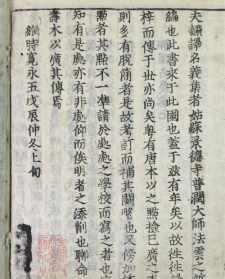 夫翻譯名義集者姑蘇景德寺普潤大師法雲
編也此書來于此國也蓋于茲有年矣以故徃徃
梓而傳于世亦尚矣粤有唐本以之點撿已廣之
則多有脫簡者是故考訂而補其闕略也又傍加
點者其點不一準請於處處之學校而寫之者也
知有是處亦有非處仰而俟明者之添削也聊命
壽木以廣其傳焉
維時寛永五戊辰仲冬上旬